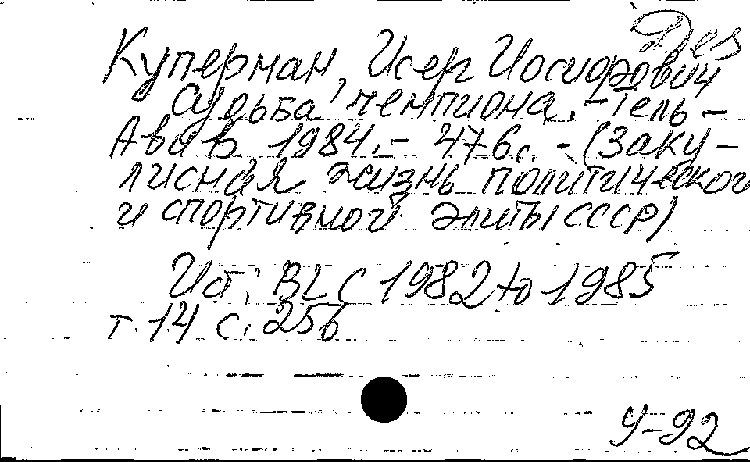 Дев
Куперман, Исер Иосифович
Судьба чемпиона. - Тель-
Авив 1984. - 476 с. - (Заку-
лисная жизнь политической
и спортивной элиты СССР)
Ист: BL C 1982 to 1985
т. 14 с. 256
У-92